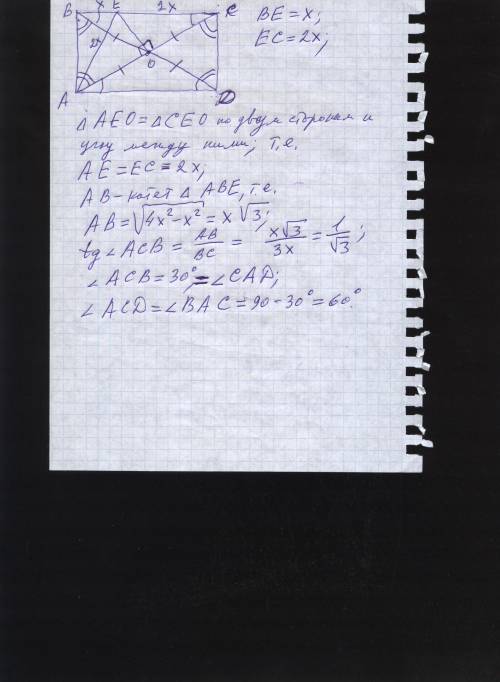 B x E 2x C
BE = x;
2x
EC = 2x;
O
A D
△ AEO = △ CEO по двум сторонам и
углу между ними; т.е.
AE = EC = 2x;
AB – катет △ ABE, т.е.
AB = √(4x² – x²) = x√3;
tg ∠ACB = AB/BC = x√3/3x = 1/√3;
∠ACB = 30° = ∠CAD;
∠ACD = ∠BAC = 90 – 30° = 60°